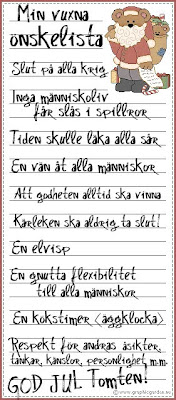 Min vuxna
önskelista
Slut på alla krig
Inga människoliv
får slås i spillror
Tiden skulle läka alla sår
En vän åt alla människor
Att godheten alltid ska vinna
Kärleken ska aldrig ta slut!
En elvisp
En gnutta flexibilitet
till alla människor
En kökstimer (äggklocka)
Respekt för andras åsikter,
tankar, känslor, personlighet m.m.
GOD JUL Tomten!